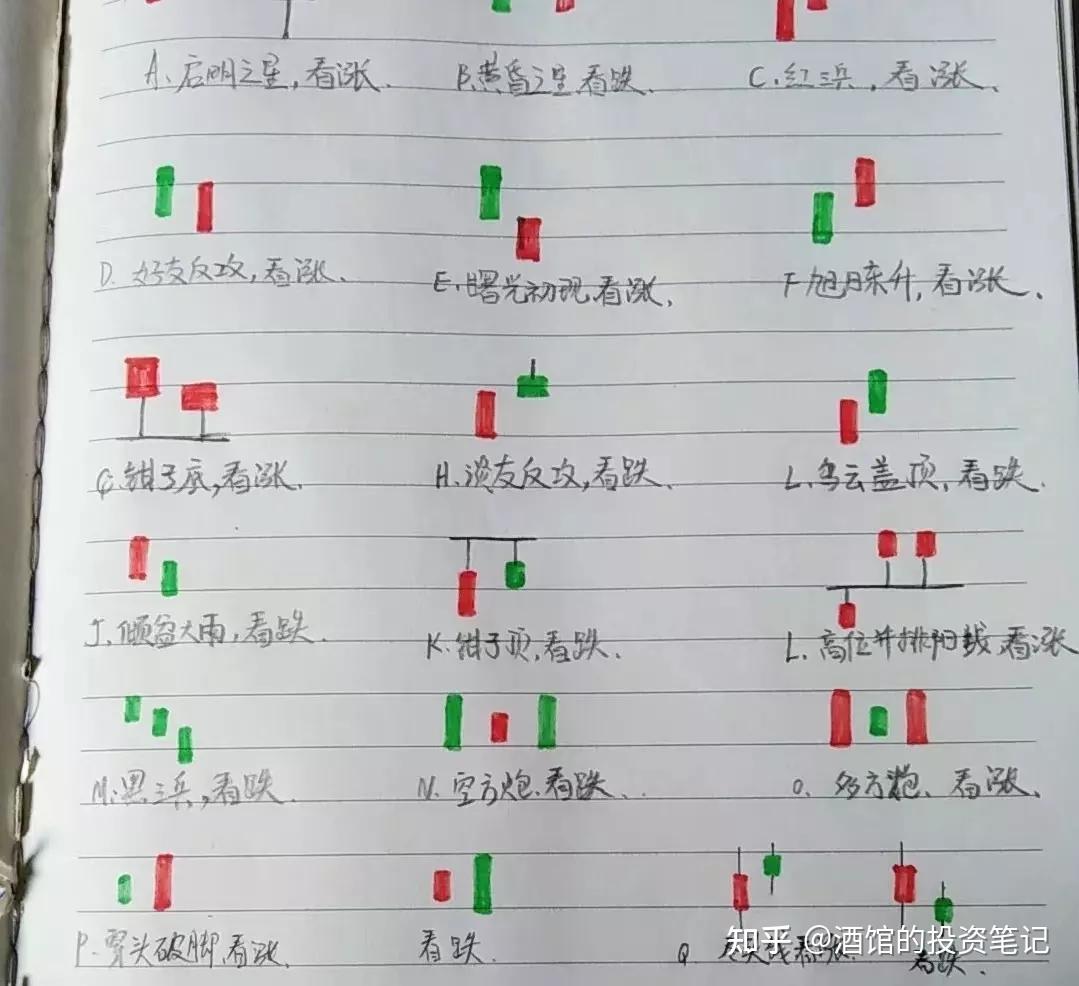 A、启明之星，看涨.
B、黄昏之星,看跌.
C、红三兵，看涨、
D. 好友反攻，看涨、
E、曙光初现,看涨、
F、旭日东升，看涨、
G、钳子底，看涨、
H、淡友反攻，看跌、
L、乌云盖顶，看跌、
J、倾盆大雨，看跌、
K、钳子顶，看跌、
L、高位并排阳线，看涨
M、黑三兵，看跌
N、空方炮、看跌、
O、多方炮、看涨、
P、穿头破脚，看涨、
看跌、
Q 尽头线看涨、
看跌、
知乎 @酒馆的投资笔记